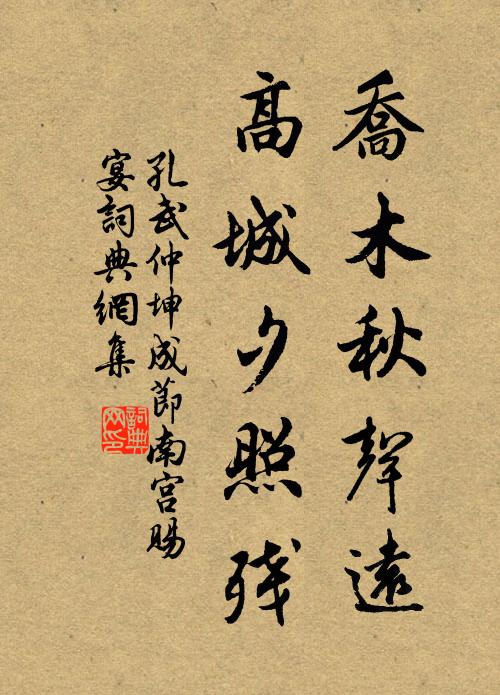 喬木秋聲遠
高城夕照残
孔武仲坤成節南宮賜
宴詞典網集
詞典
网印